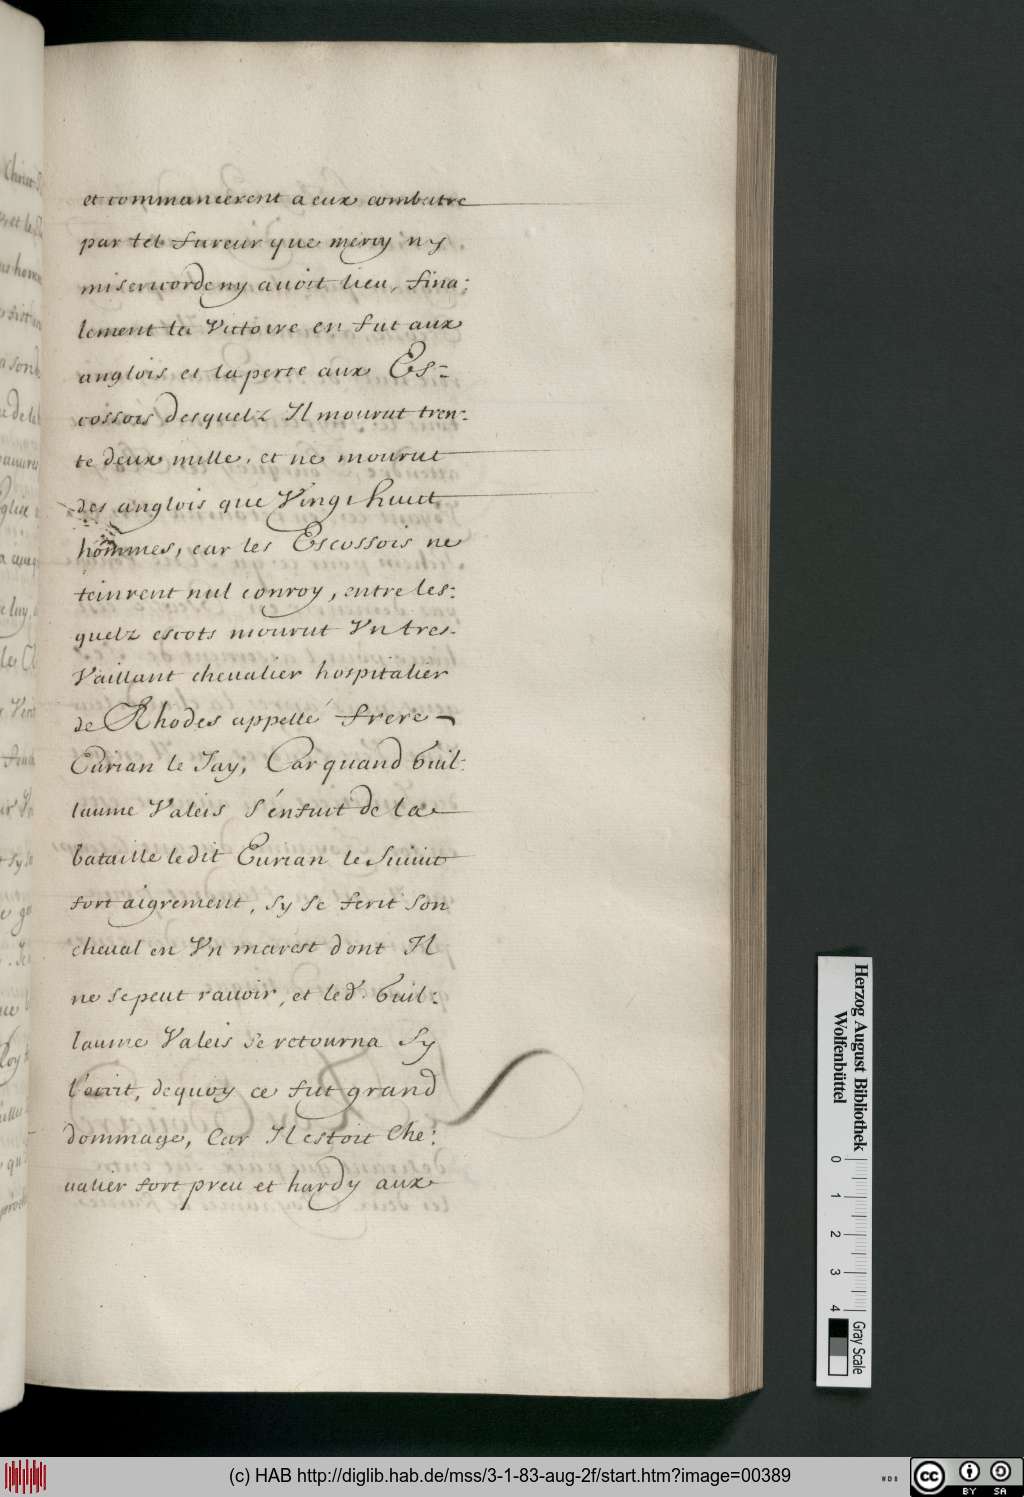 et commancerent a eux combatre
par tel fureur que mercy ny
misericorde ny auoit lieu, fina:
lement la Victoire en fut aux
anglois et la perte aux Es=
cossois desquelz Il mourut tren:
te deux mille, et ne mourut
des anglois que Vingt huict
hommes, car les Escossois ne
teinrent nul conroy, entre les:
quelz escots mourut Vn tres-
Vaillant cheualier hospitalier
de Rhodes appellé frere
Eurian le Jay, Car quand Guil:
laume Valeis s'enfuit de la
bataille ledit Eurian le Suiuit
fort aigrement, sy se ferit son
cheual en Vn marest dont Il
ne se peut rauoir, et led. Guil:
laume Valeis se retourna Sy
l'occit, dequoy ce fut grand
dommage, Car Il estoit Che:
ualier fort preu et hardy aux
Herzog August Bibliothek
Wolfenbüttel
0 1 2 3 4
Gray Scale
(c) HAB http://diglib.hab.de/mss/3-1-83-aug-2f/start.htm?image=00389
cc BY SA